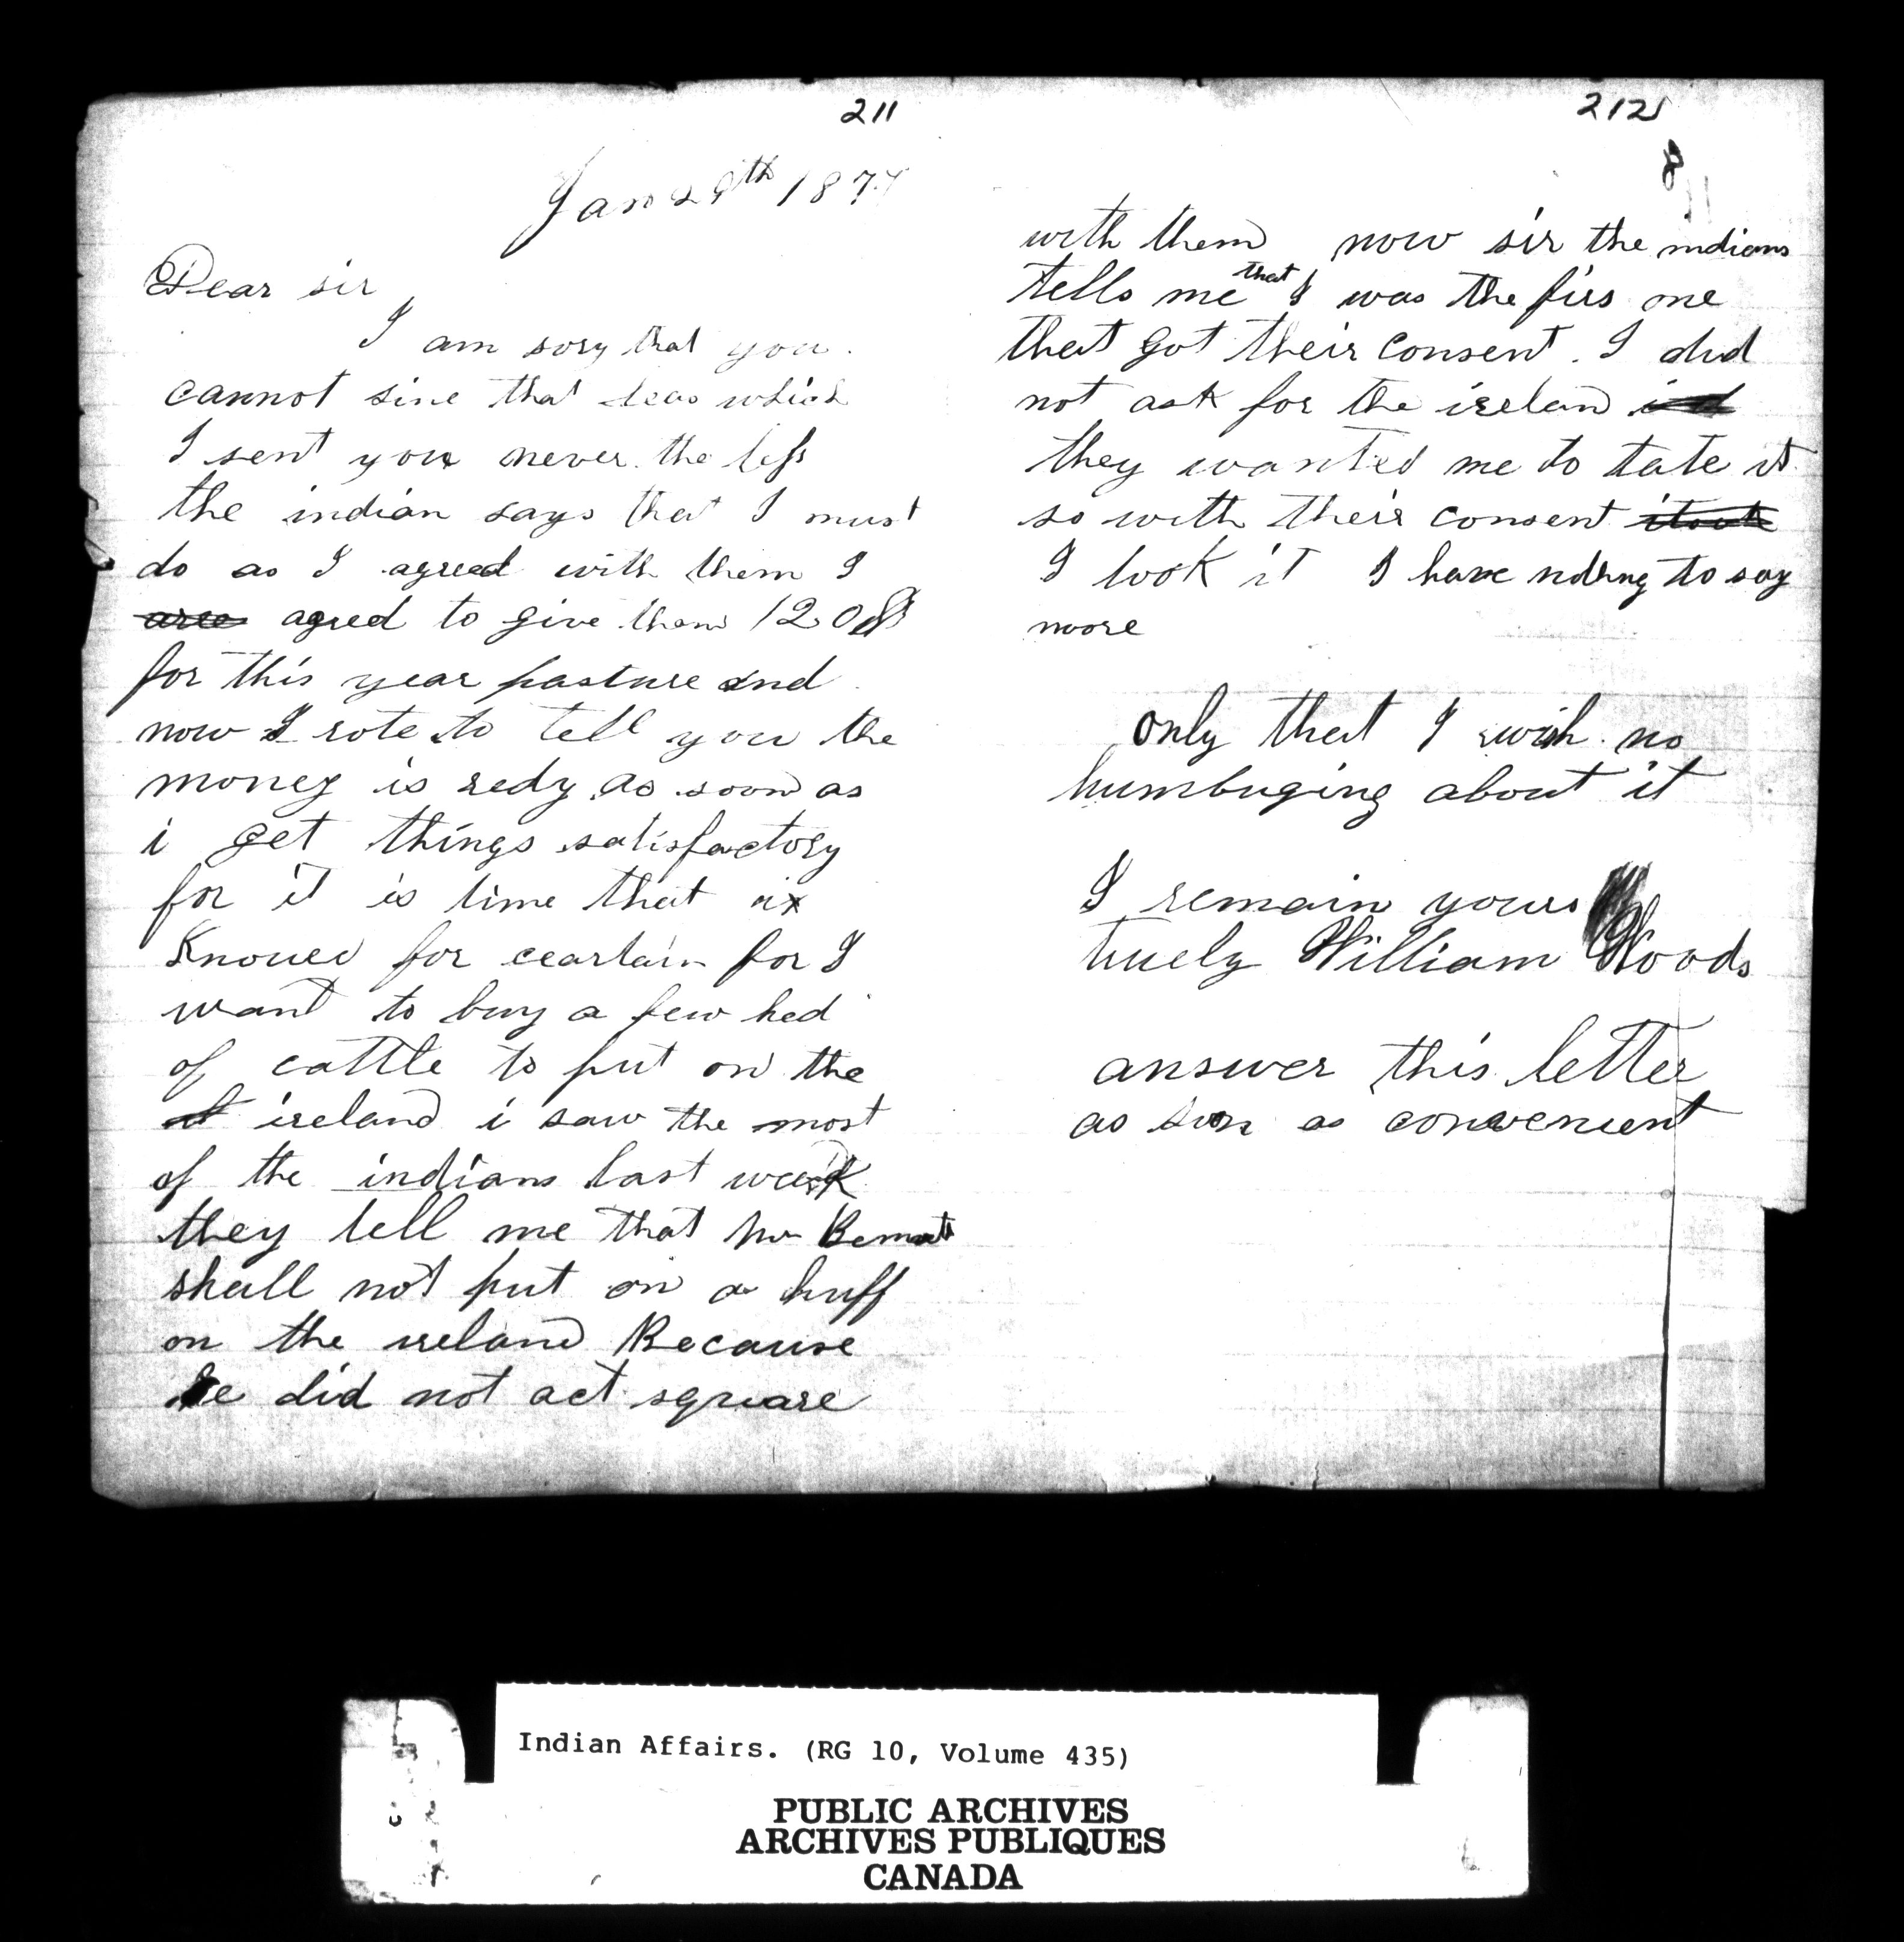 211
Jan 29th 1877
Dear sir
I am sory that you
cannot sine that leas which
I sent you never the less
the indian says that I must
do as I agreed with them I
agred to give them 120
for this year pasture and
now I rote to tell you the
money is redy as soon as
i get things satisfactory
for it is time that i
Knowed for ceartain for I
want to buy a few hed
of cattle to put on the
ireland i saw the most
of the indians last week
they tell me that
shall not put on a huff
on the ireland Because
he did not act square
212
8
with them now sir the indians
tells me that I was the firs one
that got their consent. I did
not ask for the ireland
they wanted me to tate it
so with their consent
I took it I have nothing to say
more
only that I wish no
humbuging about it
I remain yours
truely William Woods
answer this letter
as soon as convenient
Indian Affairs. (RG 10, Volume 435)
PUBLIC ARCHIVES
ARCHIVES PUBLIQUES
CANADA